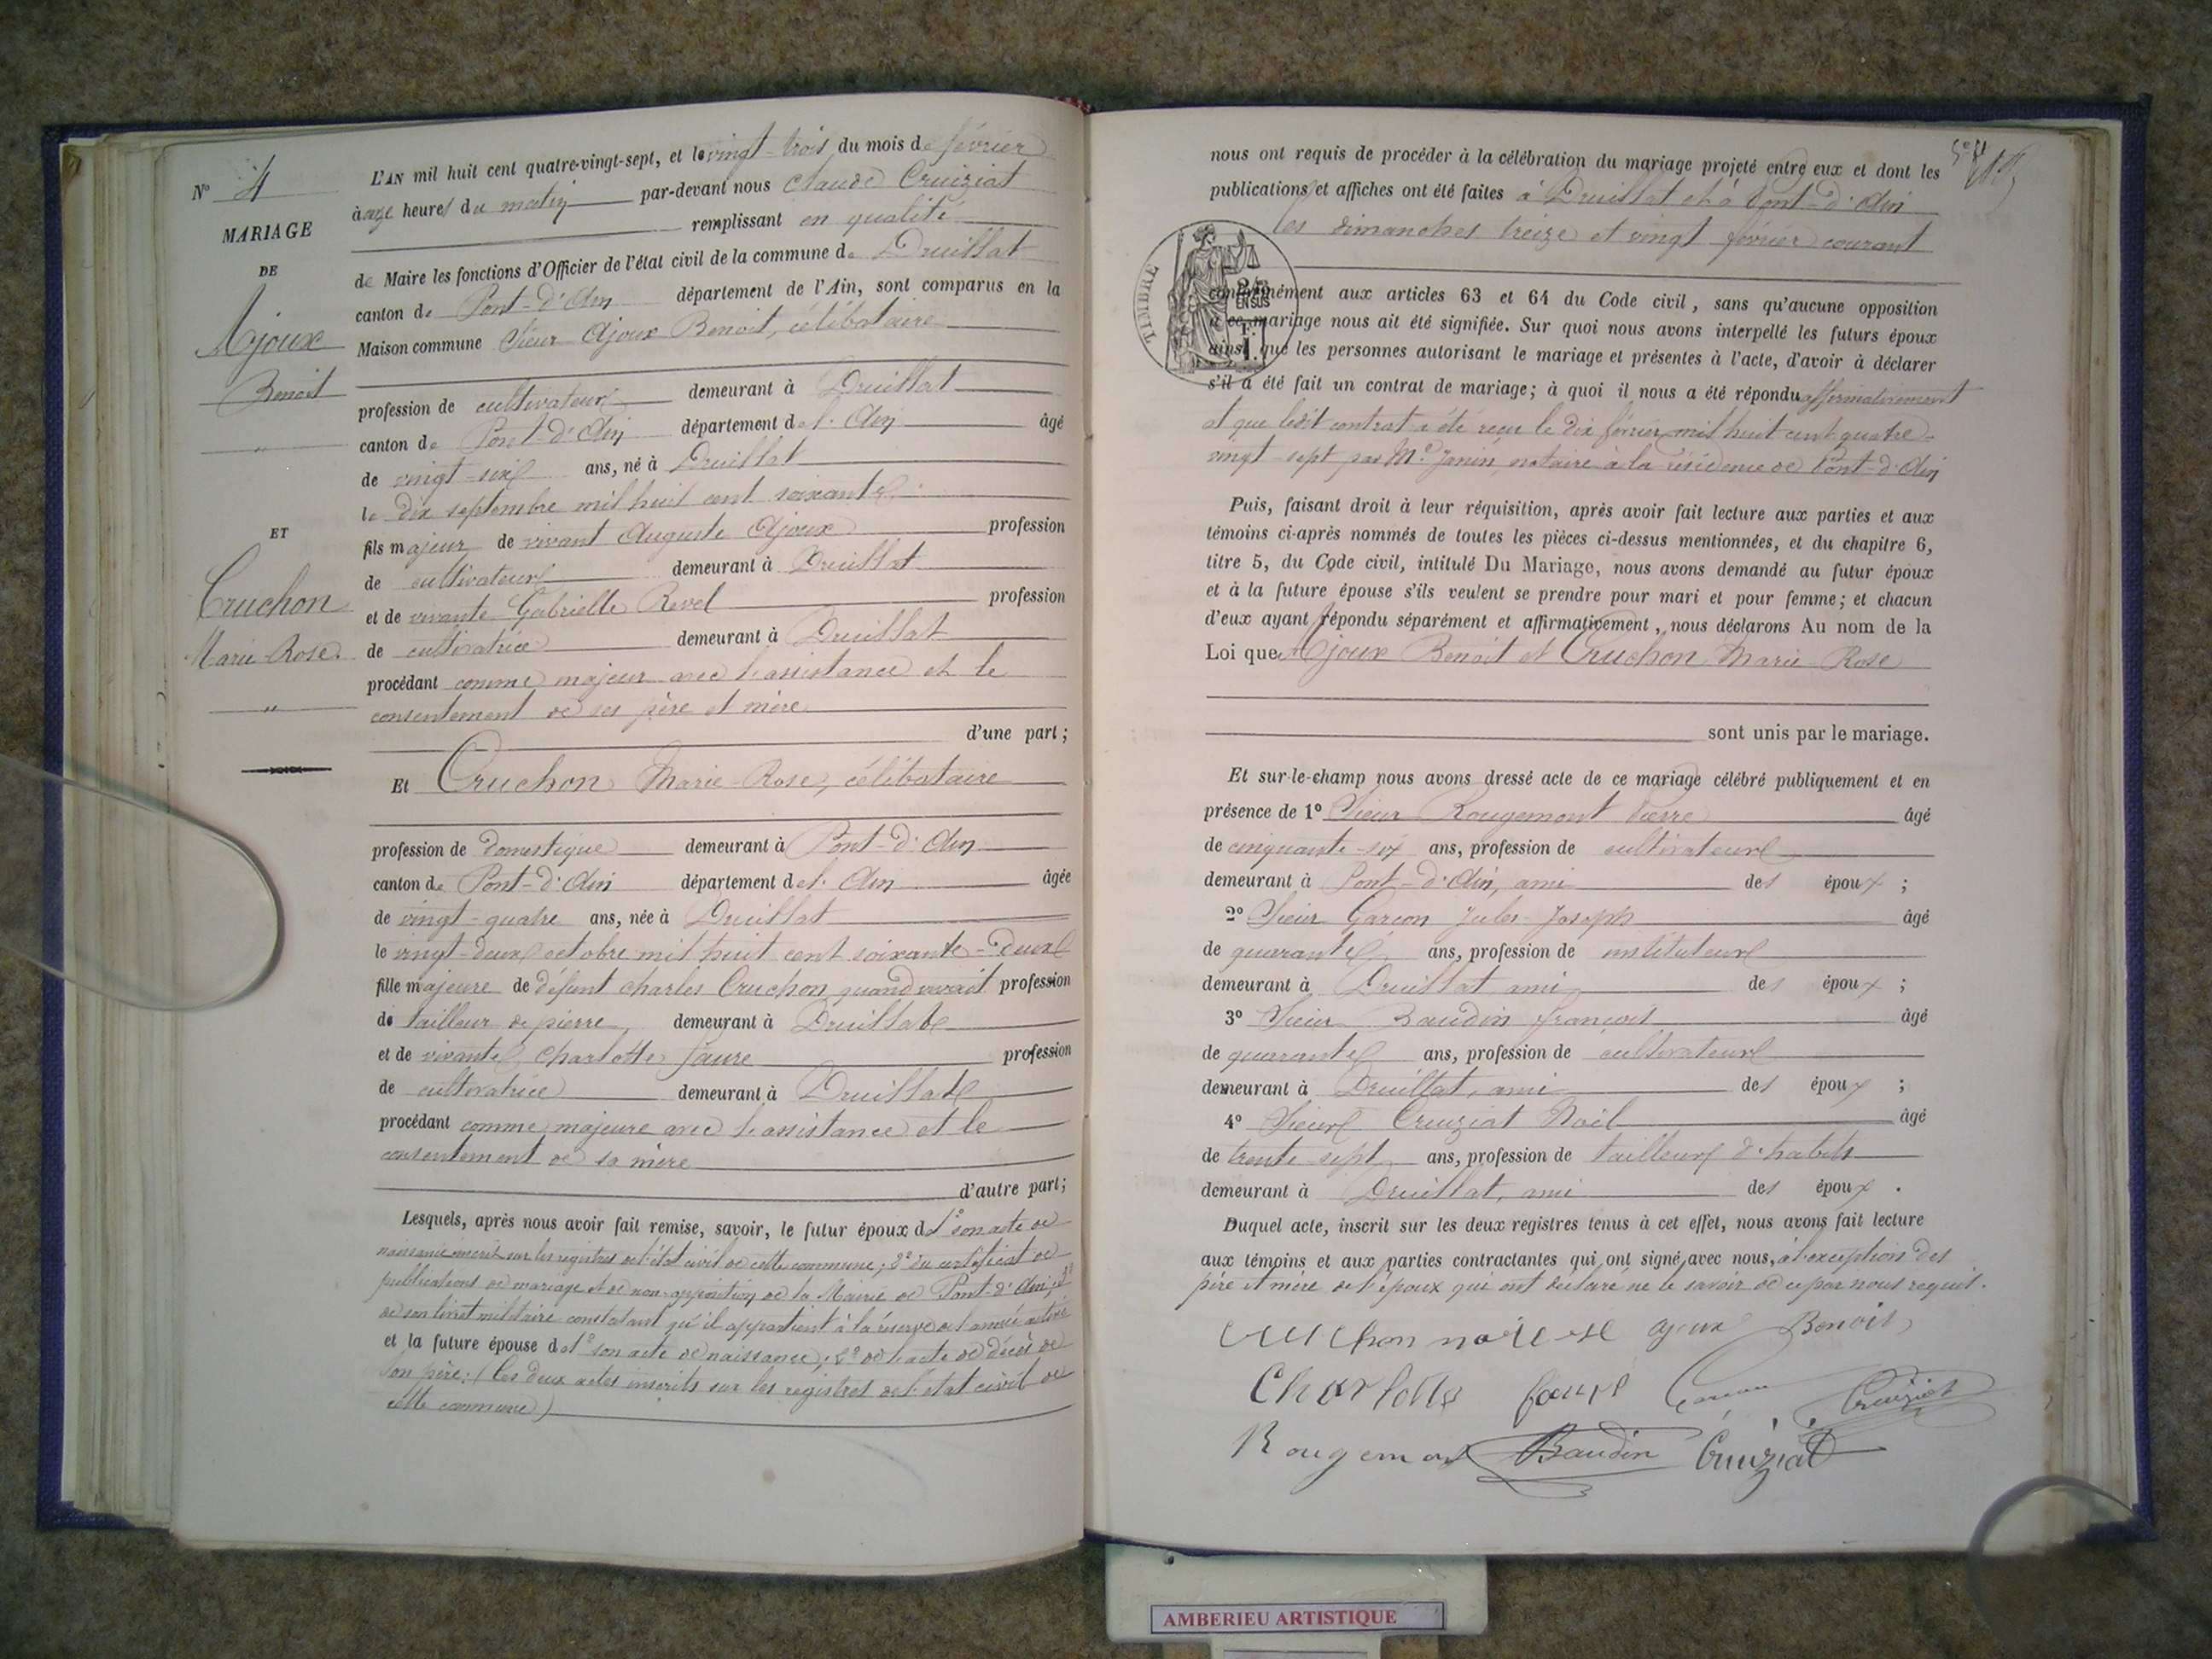 Nº 4
MARIAGE
DE
Ajoux
Benoit
"
ET
Cruchon
Marie-Rose
"
L'AN mil huit cent quatre-vingt-sept, et le vingt-trois du mois de février
à onze heures du matin par-devant nous Claude Cruiziat
remplissant en qualité
de Maire les fonctions d'Officier de l'état civil de la commune de Druillat
canton de Pont-d'Ain département de l'Ain, sont comparus en la
Maison commune Sieur Ajoux Benoit, célibataire
profession de cultivateur demeurant à Druillat
canton de Pont-d'Ain département de l'Ain âgé
de vingt-six ans, né à Druillat
le dix septembre mil huit cent soixante
fils majeur de vivant Auguste Ajoux profession
de cultivateur demeurant à Druillat
et de vivante Gabrielle Revel profession
de cultivatrice demeurant à Druillat
procédant comme majeur avec l'assistance et le
consentement de ses père et mère
d'une part;
Et Cruchon Marie-Rose, célibataire
profession de domestique demeurant à Pont-d'Ain
canton de Pont-d'Ain département de l'Ain âgée
de vingt-quatre ans, née à Druillat
le vingt-deux octobre mil huit cent soixante-deux
fille majeure de défunt Charles Cruchon quand vivait profession
de tailleur de pierre, demeurant à Druillat
et de vivante Charlotte Faure profession
de cultivatrice demeurant à Druillat
procédant comme majeure avec l'assistance et le
consentement de sa mère
d'autre part;
Lesquels, après nous avoir fait remise, savoir, le futur époux d 1º son acte de
naissance inscrit sur les registres de l'état civil de cette commune; 2º du certificat de
publications de mariage et de non-opposition de la Mairie de Pont-d'Ain; 3º
de son livret militaire constatant qu'il appartient à la réserve de l'armée active
et la future épouse de 1º son acte de naissance; 2º de l'acte de décès de
son père: (Ces deux actes inscrits sur les registres de l'état civil de
cette commune)
nous ont requis de procéder à la célébration du mariage projeté entre eux et dont les
publications et affiches ont été faites à Druillat et à Pont-d'Ain
les dimanches treize et vingt février courant
TIMBRE
EN SUS
conformément aux articles 63 et 64 du Code civil, sans qu'aucune opposition
à ce mariage nous ait été signifiée. Sur quoi nous avons interpellé les futurs époux
ainsi que les personnes autorisant le mariage et présentes à l'acte, d'avoir à déclarer
s'il a été fait un contrat de mariage; à quoi il nous a été répondu affirmativement
et que ledit contrat a été reçu le dix février mil huit cent quatre-
vingt-sept par Mᵉ Janin, notaire à la résidence de Pont-d'Ain
Puis, faisant droit à leur réquisition, après avoir fait lecture aux parties et aux
témoins ci-après nommés de toutes les pièces ci-dessus mentionnées, et du chapitre 6,
titre 5, du Code civil, intitulé Du Mariage, nous avons demandé au futur époux
et à la future épouse s'ils veulent se prendre pour mari et pour femme; et chacun
d'eux ayant répondu séparément et affirmativement, nous déclarons Au nom de la
Loi que Ajoux Benoit et Cruchon Marie Rose
sont unis par le mariage.
Et sur-le-champ nous avons dressé acte de ce mariage célébré publiquement et en
présence de 1º Sieur Rougemont Pierre âgé
de cinquante-six ans, profession de cultivateur
demeurant à Pont-d'Ain, ami des époux;
2º Sieur Garcon Jules-Joseph âgé
de quarante ans, profession de instituteur
demeurant à Druillat ami des époux;
3º Sieur Baudin François âgé
de quarante ans, profession de cultivateur
demeurant à Druillat, ami des époux;
4º Sieur Cruiziat Noël âgé
de trente-sept ans, profession de tailleur d'habits
demeurant à Druillat, ami des époux.
Duquel acte, inscrit sur les deux registres tenus à cet effet, nous avons fait lecture
aux témoins et aux parties contractantes qui ont signé avec nous, à l'exception des
père et mère de l'époux qui ont déclaré ne le savoir de ce par nous requis.
ajoux Benoit
Charlotte faure Garcon Cruiziat
Rougemont Baudin Cruiziat
AMBERIEU ARTISTIQUE